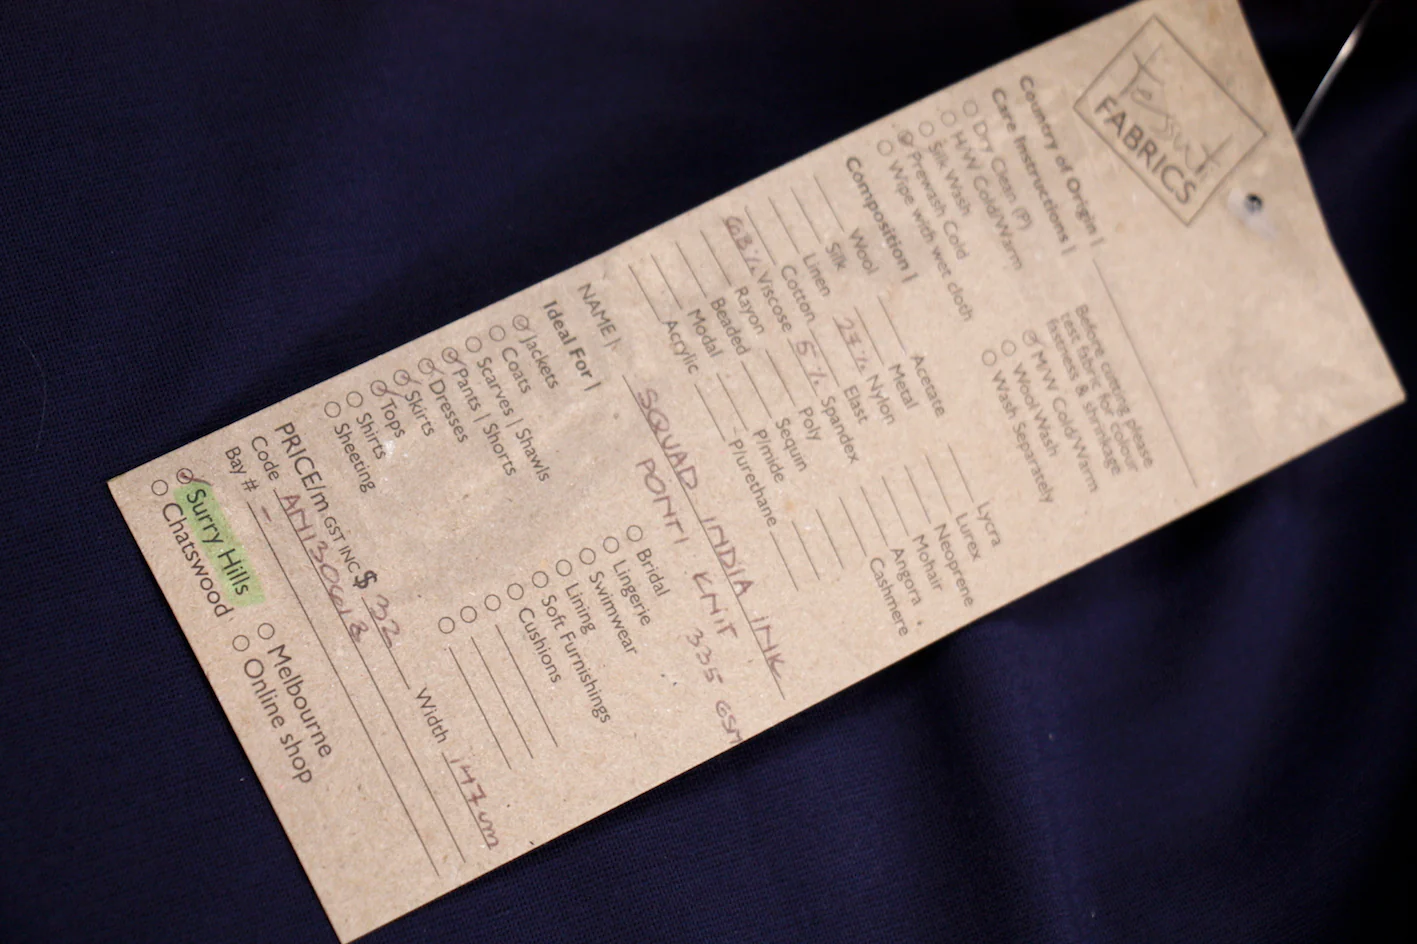 Tessuti
FABRICS
Country of Origin |
Care Instructions |
Dry Clean (P)
H/W Cold/Warm
Silk Wash
Prewash Cold
Wipe with wet cloth
Before cutting please
test fabric for colour
fastness & shrinkage
M/W Cold/Warm
Wool Wash
Wash Separately
Composition |
Wool Acetate Lycra
Silk Metal Lurex
Linen 27% Nylon Neoprene
Cotton Elast Mohair
63% Viscose 5% Spandex Angora
Rayon Poly Cashmere
Beaded Sequin
Modal P/mide
Acrylic P/urethane
NAME | SQUAD INDIA INK
PONTI KNIT 335 GSM
Ideal For |
Jackets
Coats
Scarves | Shawls
Pants | Shorts
Dresses
Skirts
Tops
Shirts
Sheeting
Bridal
Lingerie
Swimwear
Lining
Soft Furnishings
Cushions
PRICE/m GST INC $ 32 Width 147cm
Code AN130618
Bay # -
Surry Hills Melbourne
Chatswood Online shop